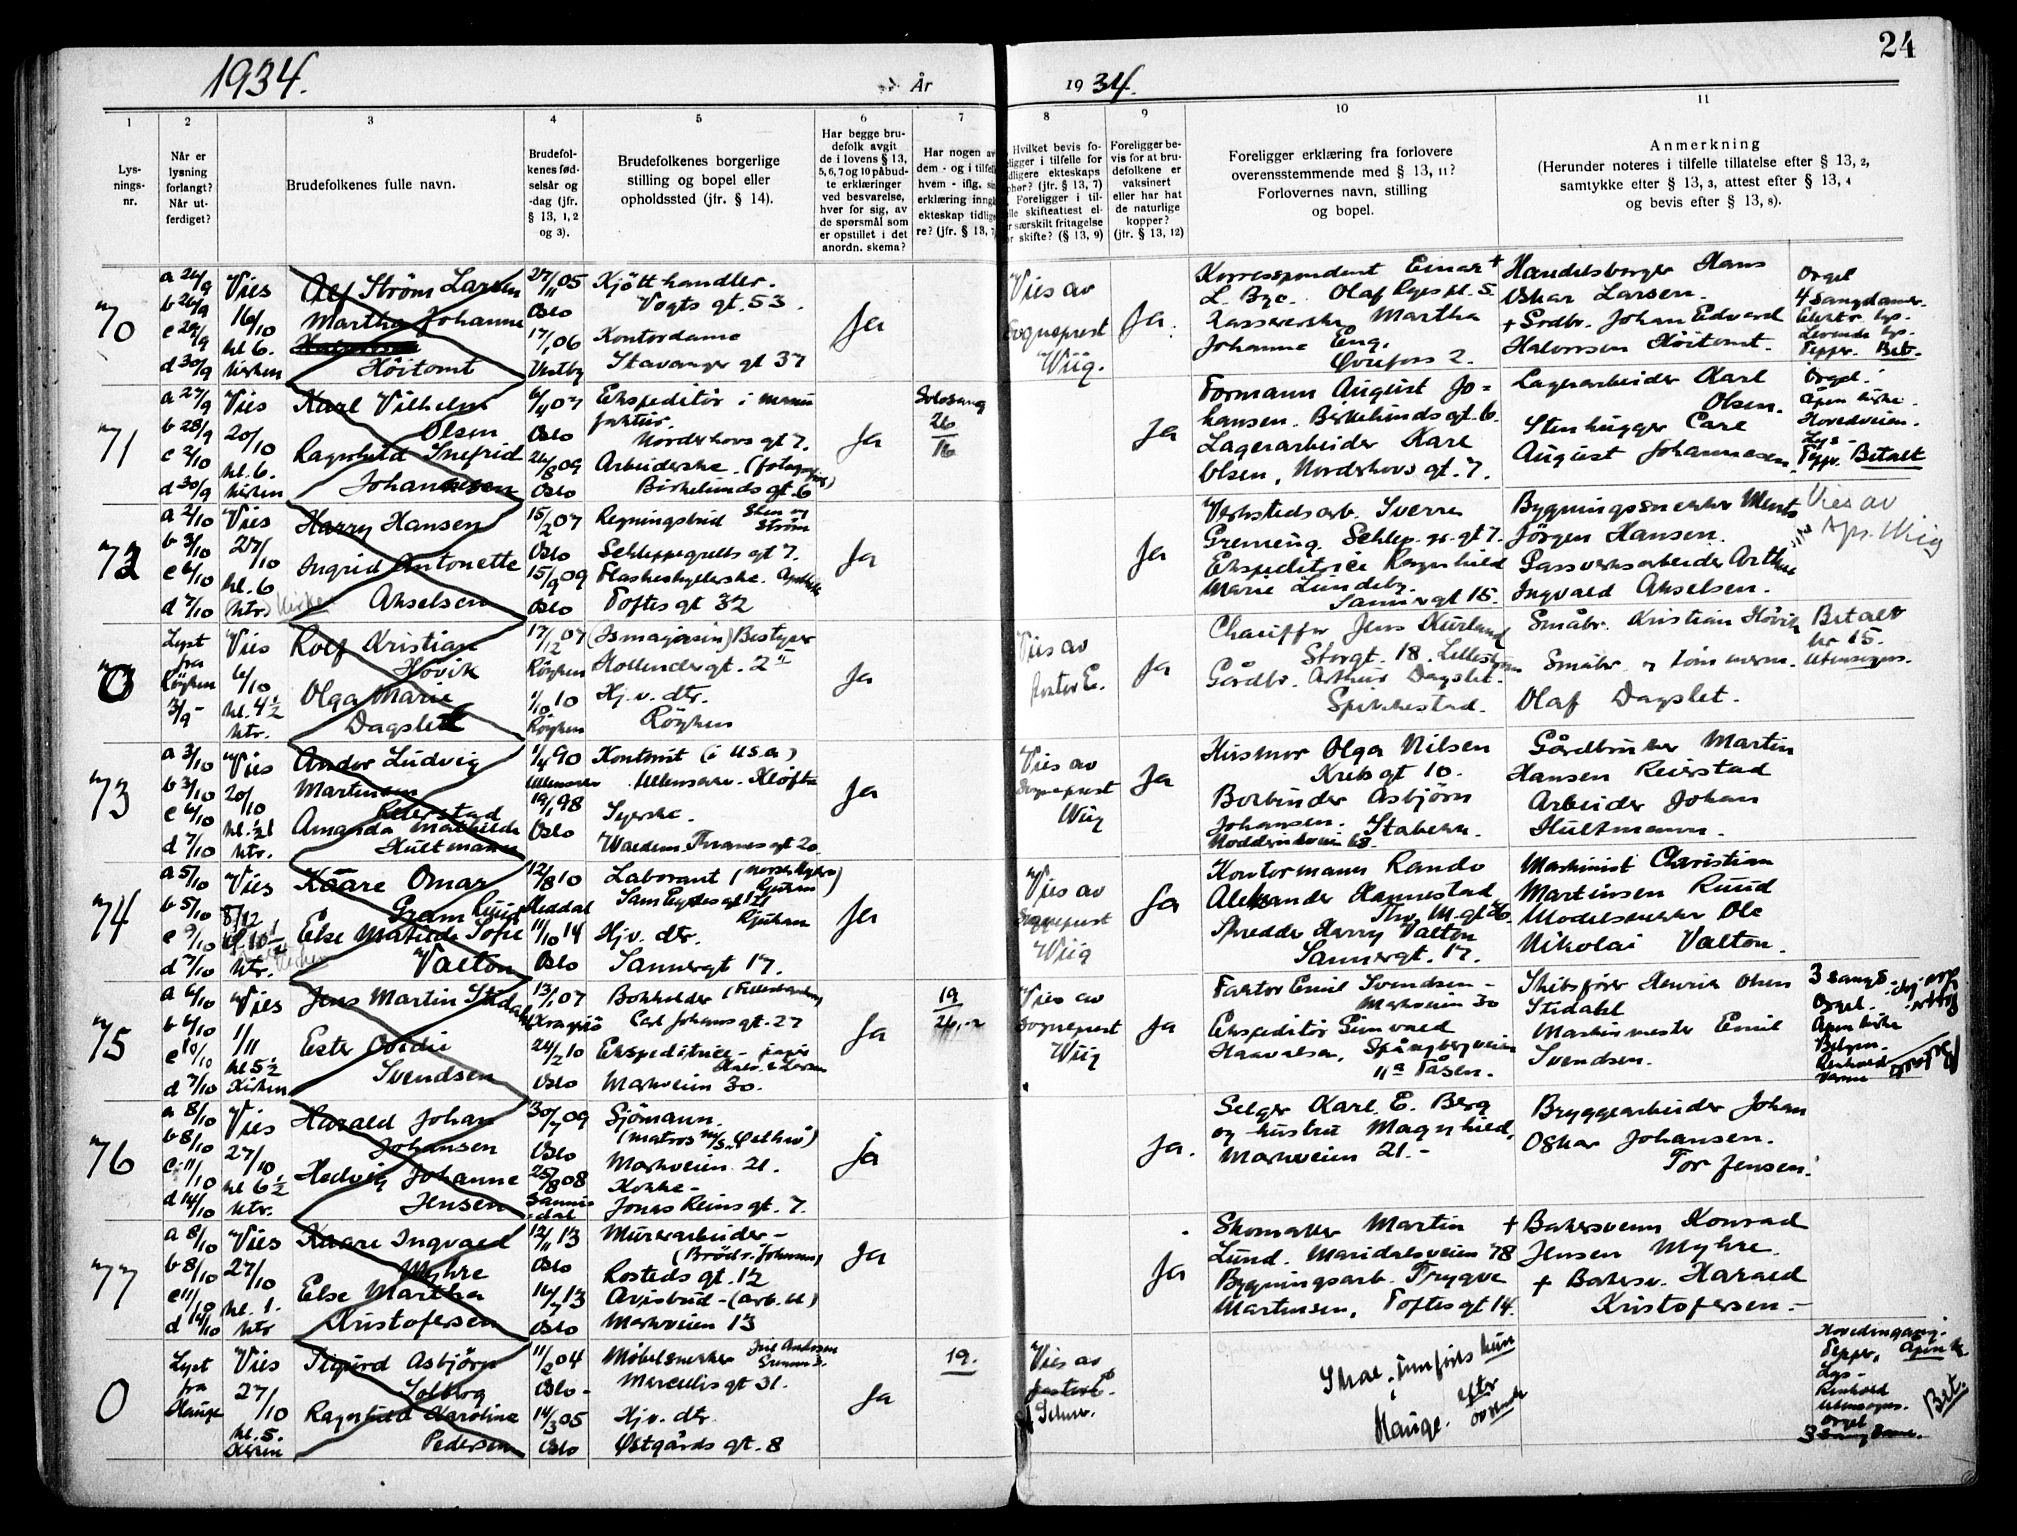 1934.
År
19 34.
24
1
2
3
4
5
6
7
8
9
10
11
Lys-
nings-
nr.
Når er
lysning
forlangt?
Når ut-
ferdiget?
Brudefolkenes fulle navn.
Brudefol-
kenes fød-
selsår og
-dag (jfr.
§ 13, 1, 2
og 3).
Brudefolkenes borgerlige
stilling og bopel eller
opholdssted (jfr. § 14).
Har begge bru-
defolk avgit
de i lovens § 13,
5, 6, 7 og 10 påbud-
te erklæringer
ved besvarelse,
hver for sig, av
de spørsmål som
er opstillet i det
anordn. skema?
Har nogen av
dem - og i tilfelle
hvem - iflg. sin
erklæring inngått
ekteskap tidlige-
re? (jfr. § 13, 7)
Hvilket bevis fo-
religger i tilfelle for
tidligere ekteskaps
ophør? (jfr. § 13, 7)
Foreligger i til-
felle skifteattest el-
er særskilt fritagelse
for skifte? (§ 13, 9)
Foreligger be-
vis for at bru-
defolkene er
vaksinert
eller har hat
de naturlige
kopper?
(jfr. § 13, 12)
Foreligger erklæring fra forlovere
overensstemmende med § 13, 11?
Forlovernes navn, stilling
og bopel.
Anmerkning
(Herunder noteres i tilfelle tillatelse efter § 13, 2,
samtykke efter § 13, 3, attest efter § 13, 4
og bevis efter § 13, 8).
70
a 26/9
b 26/9
c 29/9
d 30/9
Vies
16/10
kl. 6.
kirken
Alf Strøm Larsen
Martha Johanne
Höitomt
27/11 05
Oslo
17/1 06
Vestby
Kjøtthandler.
Vogts gt. 53.
Kontordame
Stavanger gt 37
Ja
Vies av
Sogneprest
Wiig.
Ja.
Korrespondent Einar
L. Bye. Olaf Ryes pl. 5.
Kassererske Martha
Johanne Eng.
Øvrefoss 2.
+ Handelsborger Hans
Oskar Larsen.
+ Sndbr. Johan Edvard
Halvorsen Höitomt.
Orgel
4 sangdamer.
Elektr. lys.
Levende lys.
Tepper. Bet.
71
a 27/9
b 28/9
c 2/10
d 30/9
Vies
20/10
kl. 6.
kirken
Karl Vilhelm
Olsen
Ragnhild Ingfrid
Johannesen
6/4 07
Oslo
26/8 09
Oslo
Ekspeditör i manu
faktur.
Norderhovs gt 7.
Arbeiderske.
Birkelunds gt. 6
Ja
Solosang
26
16
Ja
Formann August Jo-
hansen. Birkelunds gt. 6.
Lagerarbeider Karl
Olsen, Norderhovs gt. 7.
Lagerarbeider Karl
Olsen.
Stenhugger Carl
August Johannesen.
Orgel.
Åpen kirke.
Hovedveien.
Lys -
Tepp. Betalt
72
a 2/10
b 3/10
c 6/10
d 7/10
Vies
27/10
kl. 6
ktr. Kirken
Harry Hansen
Ingrid Antonette
Akselsen
15/2 07
Oslo
15/9 09
Oslo
Regningsbud Steen og
Strøm
Schleppegrells gt 7.
Flaskeskyllerske. Apothek
Toftes gt 32
Ja
Ja
Verkstedsarb. Sverre
Greneng. Schlep. gr. gt 7.
Ekspeditrice Ragnhild
Marie Lundeby.
Sannergt 15.
Bygningssnekker Mentz
Jörgen Hansen.
Gassverksarbeider Arthur
Ingvald Akselsen.
Vies av
Spr. Wiig
0
Lyst
fra
Röyken
3/9 -
Vies
6/10
kl. 4 1/2
ktr.
Rolf Kristian
Hövik
Olga Marie
Dagslet
17/12 07
Röyken
1/10 10
Röyken
(Ismagasin) Bestyrer
Hollendergt. 2 II
Hj. v. dtr.
Röyken
Ja
Vies av
pastor E.
Ja
Chauffør Jens Kurland
Storgt. 18. Lillestrøm
Gårdbr. Arthur Dagslet.
Spikkestad.
Småbr. Kristian Hövik
Småbr. og tömmerm.
Olaf Dagslet.
Betalt
kr 15.
Utensogns.
73
a 3/10
b 3/10
c 6/10
d 7/10
Vies
20/10
kl. 1/2 1
ktr.
Andor Ludvig
Martinsen
Reierstad
Amanda Mathilde
Hultmann
1/4 90
Ullensaker
19/1 98
Oslo
Kontorist (i USA)
Ullensaker. Kløfta
Syerske.
Waldem. Thranes gt 20.
Ja
Vies av
Sogneprest
Wiig
Ja
Husmor Olga Nilsen
Krebs gt 10.
Bokbinder Asbjörn
Johansen. Stabekk.
Gårdbruker Martin
Hansen Reierstad
Arbeider Johan
Hultmann.
74
a 5/10
b 5/10
c 9/10
d 7/10
Vies
8/12
ktr.
Kirken
Kåare Omar
Gram Ruud
Else Matilde Sofie
Valton
12/8 10
Heddal
11/10 14
Oslo
Laborant (norsk hydro
Rjukan)
Sam Eydes gt 121
Rjukan
Hj. v. dtr.
Sannergt 17.
Ja
Vies av
Sogneprest
Wiig
Ja
Kontormann Rando
Aleksander Hannestad
Spredder Harry Valton
Sannergt. 17.
Maskinist Christian
Martinsen Ruud
Modelsnekker Ole
Nikolai Valton.
75
a 6/10
b 6/10
c 10/10
d 7/10
Vies
1/11
kl 5 1/2
Kirken
Jens Martin Stidahl
Ester Ovidie
Svendsen
13/1 07
Kragerö
24/2 10
Oslo
Bokholder
Carl Johans gt. 27
Ekspeditrice -
Markveien 30.
Ja
19
Vies av
Sogneprest
Wiig
Ja
Faktor Emil Svendsen -
Markveien 30
Ekspeditör Gunvald
Haavalsen, Spångbergveien
11a Tåsen.
Skibsförer Henrik Olsen
Stidahl
Maskinmester Emil
Svendsen.
3 sangs.
Orgel.
Åpen kirke
Belysn.
Renhold
Varme
Betalt
76
a 8/10
b 8/10
c 11/10
d 14/10
Vies
27/10
kl 6 1/2
ktr.
Harald Johan
Johansen
Hedvig Johanne
Jensen
30/7 09
Oslo
25/8 08
Sannidal
Sjömann.
Markveien 21.
Kokke -
Jonas Reins gt. 7.
ja
Ja.
Selger Karl. E. Berg
og hustru Magnhild,
Markveien 21. -
Bryggearbeider Johan
Oskar Johansen.
Tor Jensen.
77
a 8/10
b 8/10
c 11/10
d 14/10
Vies
27/10
kl. 1.
ktr
Kaare Ingvald
Myhre
Else Martha
Kristofersen
12/11 13
Oslo
16/7 13
Oslo
Murerarbeider -
(Brödr. Johnsen)
Rosteds gt. 12
Avisbud - (arb. bl)
Markveien 13
Ja
Ja
Skomaker Martin
Lund. Maridalsveien 78
Bygningsarb. Trygve
Martinsen, Toftes gt 14.
+ Bakersvenn Konrad
Jensen Myhre.
+ Bakersv. Harald
Kristofersen. -
0
Lyst
fra
Hauge
Vies
27/10
kl. 5.
Kirken
Sigurd Asbjörn
Solberg
Ragnhild Karoline
Pedersen
11/2 04
Oslo -
14/3 05
Oslo
Möbelsnekker
Marcelis gt 31.
Hj. v. dtr.
Østgårds gt. 8
Ja
19.
Vies av
Skal innföres kun
i
Hauge. efter
Hovedingang.
Tepper, Åpen k.
Lys -
Renhold
Utensogns.
Orgel
3 sangdame.
Bet.